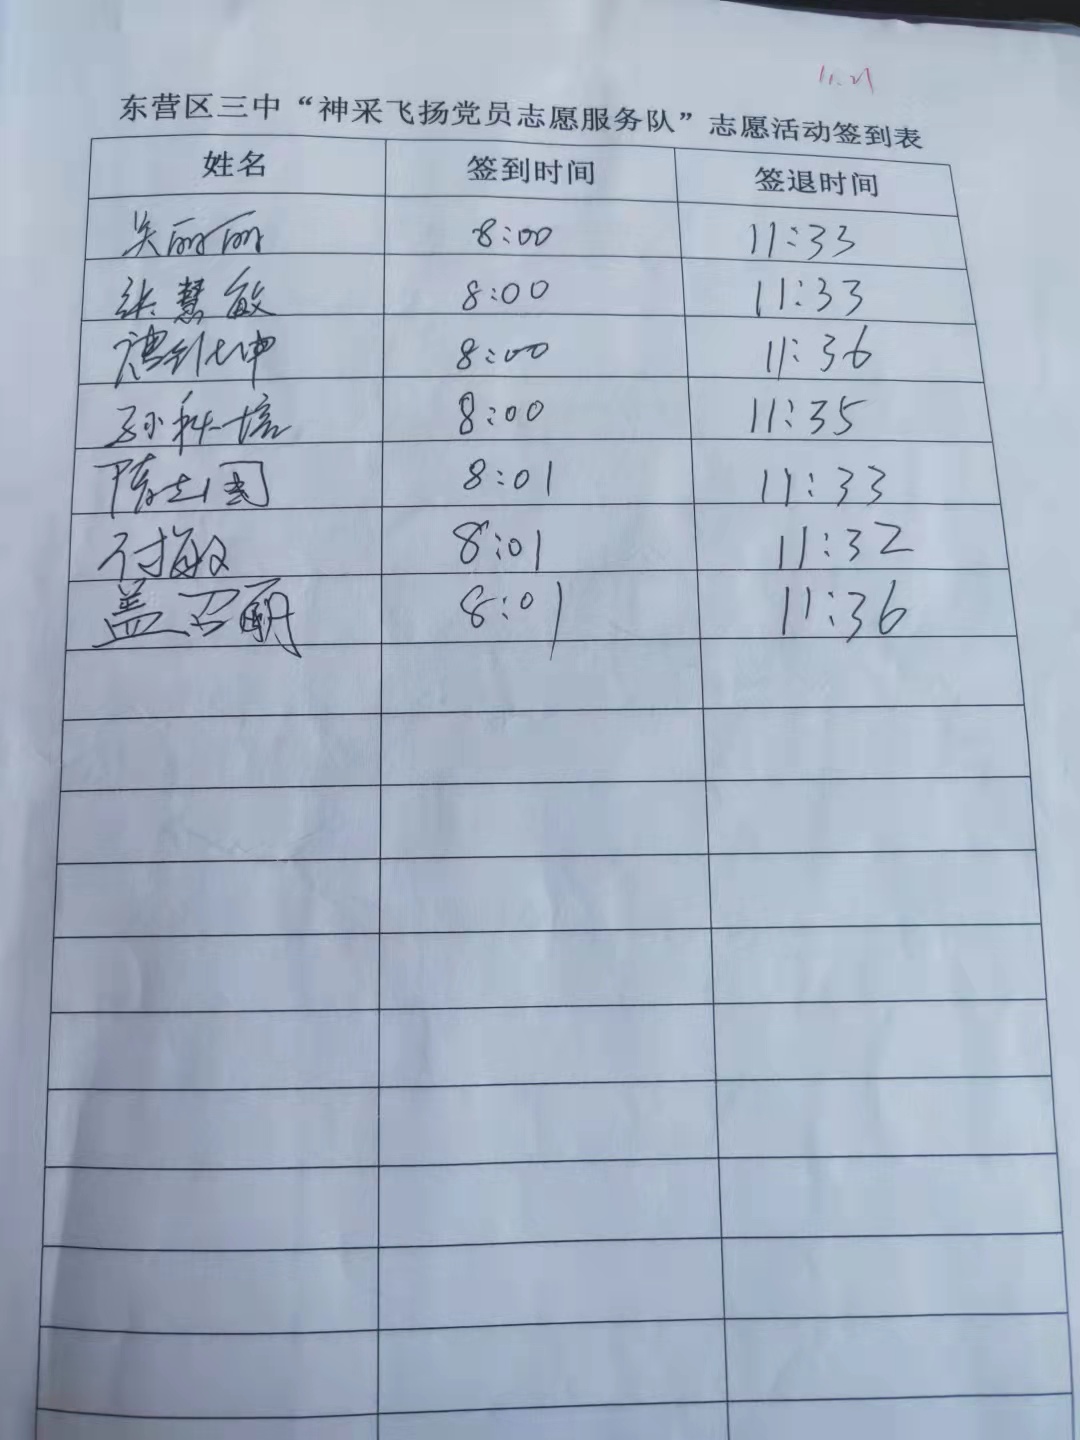 11.21
东营区三中“神采飞扬党员志愿服务队”志愿活动签到表
姓名 签到时间 签退时间
吴丽丽 8:00 11:33
张慧敏 8:00 11:33
8:00 11:36
孙科培 8:00 11:35
陈志国 8:01 11:33
付敏 8:01 11:32
盖召丽 8:01 11:36